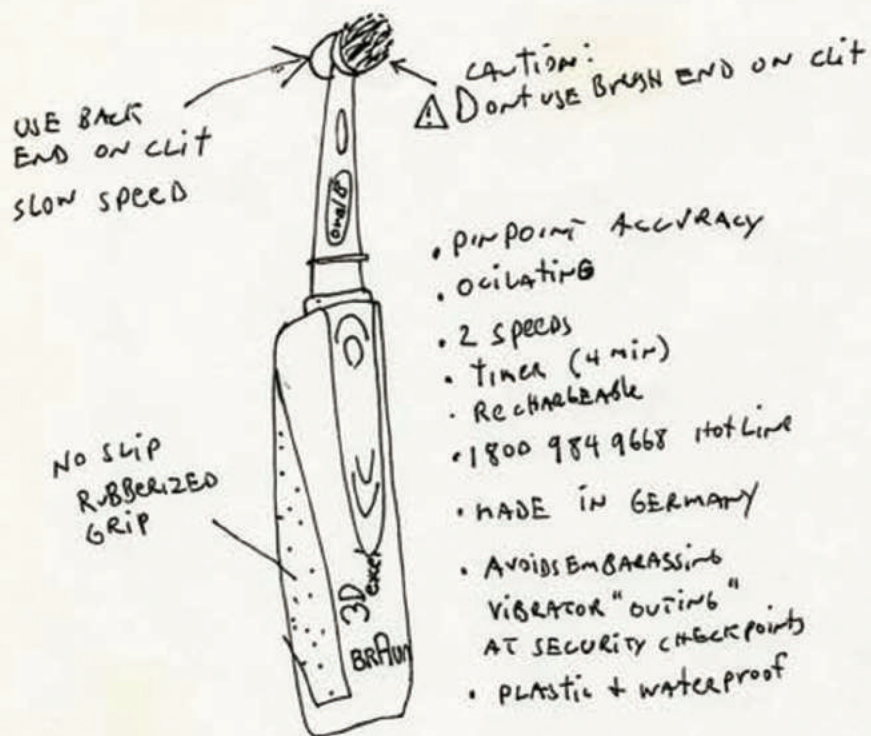 USE BACK
END ON CLIT
SLOW SPEED
CAUTION:
⚠ DONT USE BRUSH END ON CLIT
oral B
• PINPOINT ACCURACY
• OCILATING
• 2 SPEEDS
• TIMER (4 min)
• RECHARGEABLE
• 1800 984 9668 HOTLINE
• MADE IN GERMANY
• AVOIDS EMBARASSING
VIBRATOR "OUTING"
AT SECURITY CHECKPOINTS
• PLASTIC + WATERPROOF
NO SLIP
RUBBERIZED
GRIP
3D excel
BRAUN